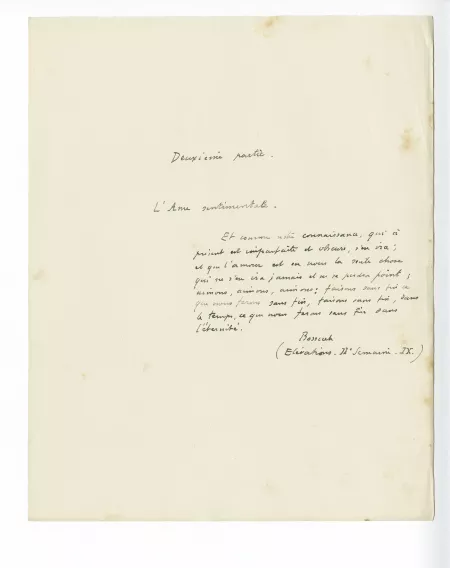 Deuxième partie.
L'Ame sentimentale.
Et comme notre connaissance, qui à
présent est imparfaite et obscure, s'en ira ;
et que l'amour est en nous la seule chose
qui ne s'en ira jamais et ne se perdra point ;
aimons, aimons, aimons ; faisons sans fin ce
que nous ferons sans fin, faisons sans fin, dans
le temps, ce que nous ferons sans fin dans
l'éternité.
Bossuet
(Elévations. IIe Semaine. IX.)